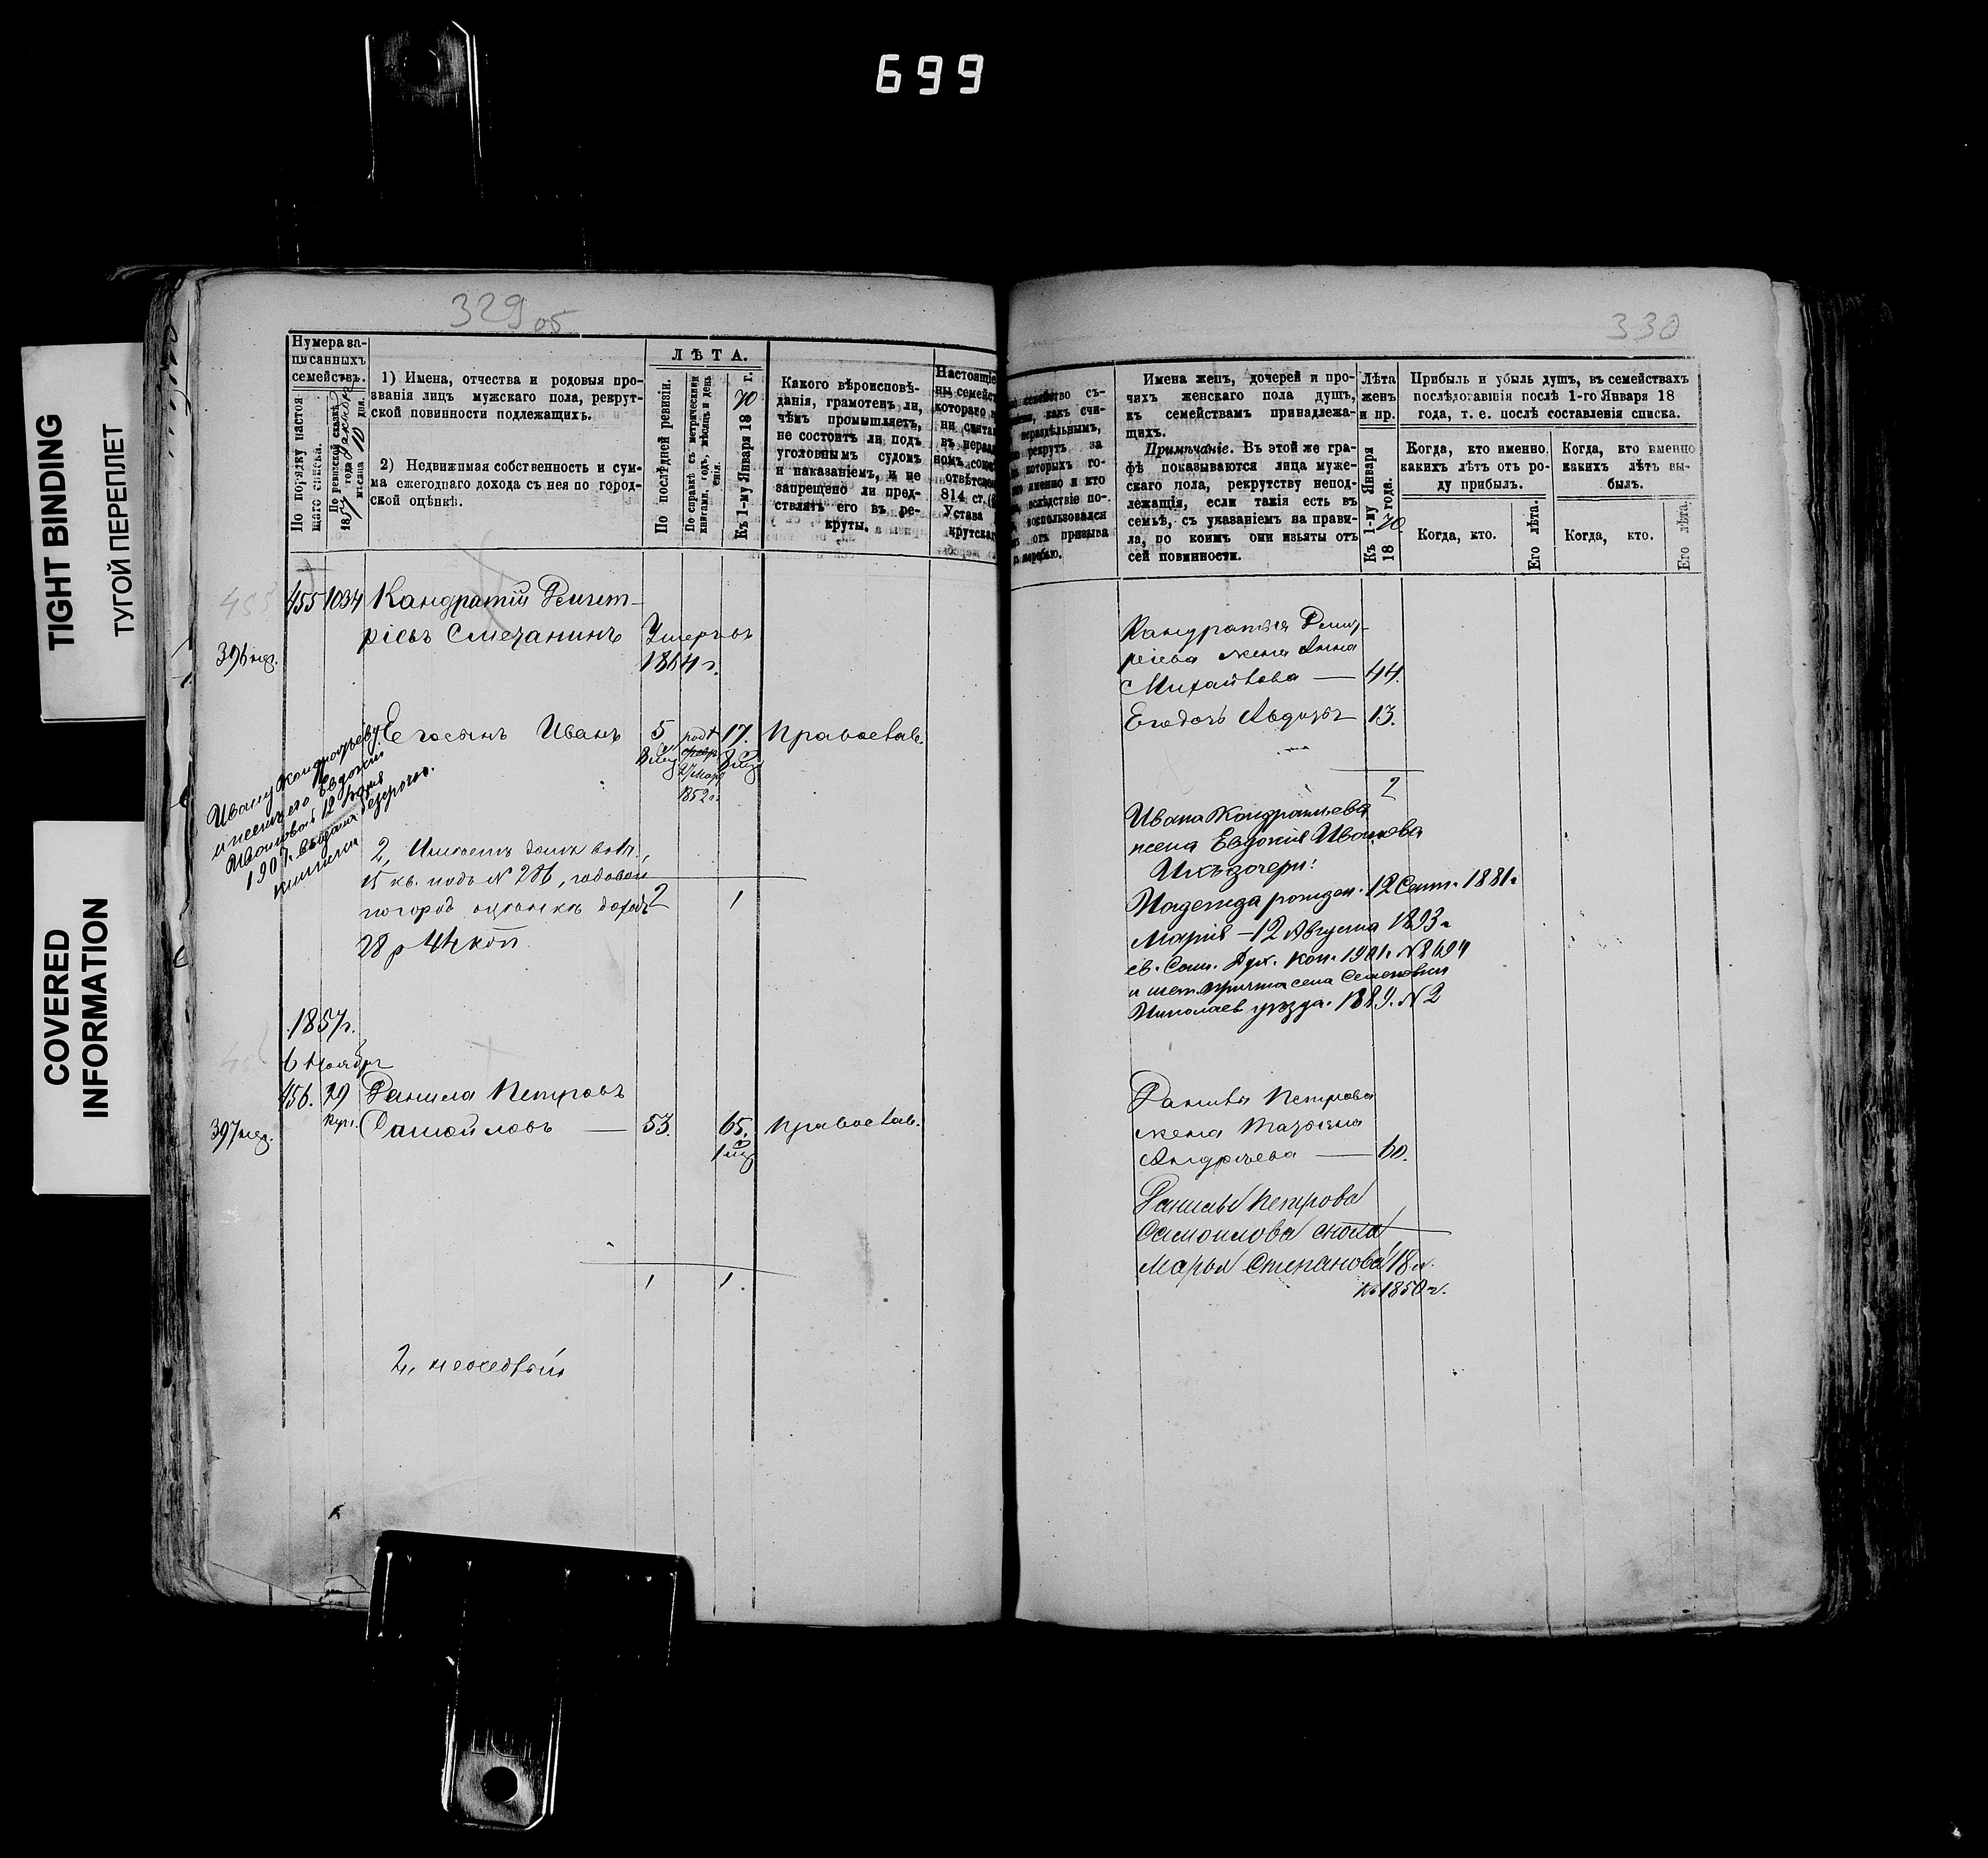 699
TIGHT BINDING
ТУГОЙ ПЕРЕПЛЕТ
COVERED
INFORMATION
329 об
Нумера за-
писанныхъ
семействъ.
По порядку настоя-
щаго списка.
По ревизской сказкѣ
1857 года
мѣсяца 10 дня.
1) Имена, отчества и родовыя про-
званія лицъ мужскаго пола, рекрут-
ской повинности подлежащихъ.
2) Недвижимая собственность и сум-
ма ежегоднаго дохода съ нея по город-
ской оцѣнкѣ.
ЛѢТА.
По послѣдней ревизіи.
По справкѣ съ метрическими
книгами, годъ, мѣсяцъ и день
Къ 1-му Января 1870 г.
Какого вѣроисповѣ-
данія, грамотенъ ли,
чѣмъ промышляетъ,
не состоитъ ли подъ
уголовнымъ судомъ
и наказаніемъ, и не
запрещено ли пред-
ставлять его въ ре-
круты.
Настоящіе
ны семейст
котораго
ни считаю
въ нераз
номъ союз
отвѣтствен
814 ст.
Устава
крутскаг
455 1034 Кандратій Димит-
ріевъ Смечанинъ Умеръ въ
396 мѣщ. 1864 г.
Егосынъ Иванъ 5 17. Православ.
8 мѣс 27 Мар 8 мѣс
1852 г.
Ивану Кондратьеву
и женѣ его Евдокіи
Ивановой 12
1907 г. выданы
книжки
2, Имѣетъ домъ въ 4 ч.,
15 кв. подъ № 286, годовой
по город. оцѣнкѣ доходъ 2 1
28 р 44 коп
1857 г.
6 Ноября
456. 29 Данила Петровъ
397 мѣщ. Самойловъ — 53. 65. Православ.
1 мѣс
1 1
2, неосѣдлый
330
семейство съ-
какъ счи-
нераздѣльнымъ,
рекрутъ за
которыхъ го-
именно и кто
вслѣдствіе по-
воспользовался
отъ призыва
жеребью.
Имена женъ, дочерей и про-
чихъ женскаго пола душъ,
къ семействамъ принадлежа-
щихъ.
Примѣчаніе. Въ этой же гра-
фѣ показываются лица муже-
скаго пола, рекрутству непод-
лежащія, если такія есть въ
семьѣ, съ указаніемъ на прави-
ла, по коимъ они изъяты отъ
сей повинности.
Лѣта
женъ
и пр.
Къ 1-му Января
1870 года.
Прибыль и убыль душъ, въ семействахъ
послѣдовавшія послѣ 1-го Января 18
года, т. е. послѣ составленія списка.
Когда, кто именно
какихъ лѣтъ отъ ро-
ду прибылъ.
Когда, кто именно
какихъ лѣтъ вы-
былъ.
Когда, кто.
Его лѣта.
Когда, кто.
Его лѣта.
Кандратія Димит-
ріева жена Анна
Михайлова — 44.
Егодочь Авдотья 13.
2
Ивана Кондратьева
жена Евдокія Иванова
Ихъ дочери:
Надежда рожден. 12 Сент. 1881 г
Марія — 12 Августа 1893 г
св. Сам. Дух. Кон. 1901 г № 8694
и мет. причта села
Николаев уѣзда. 1889. № 2
Данилы Петрова
жена Татьяна
Андреева — 60.
Данилы Петрова
Самойлова сноха
Марья Степанова 18 л.
къ 1850 г.